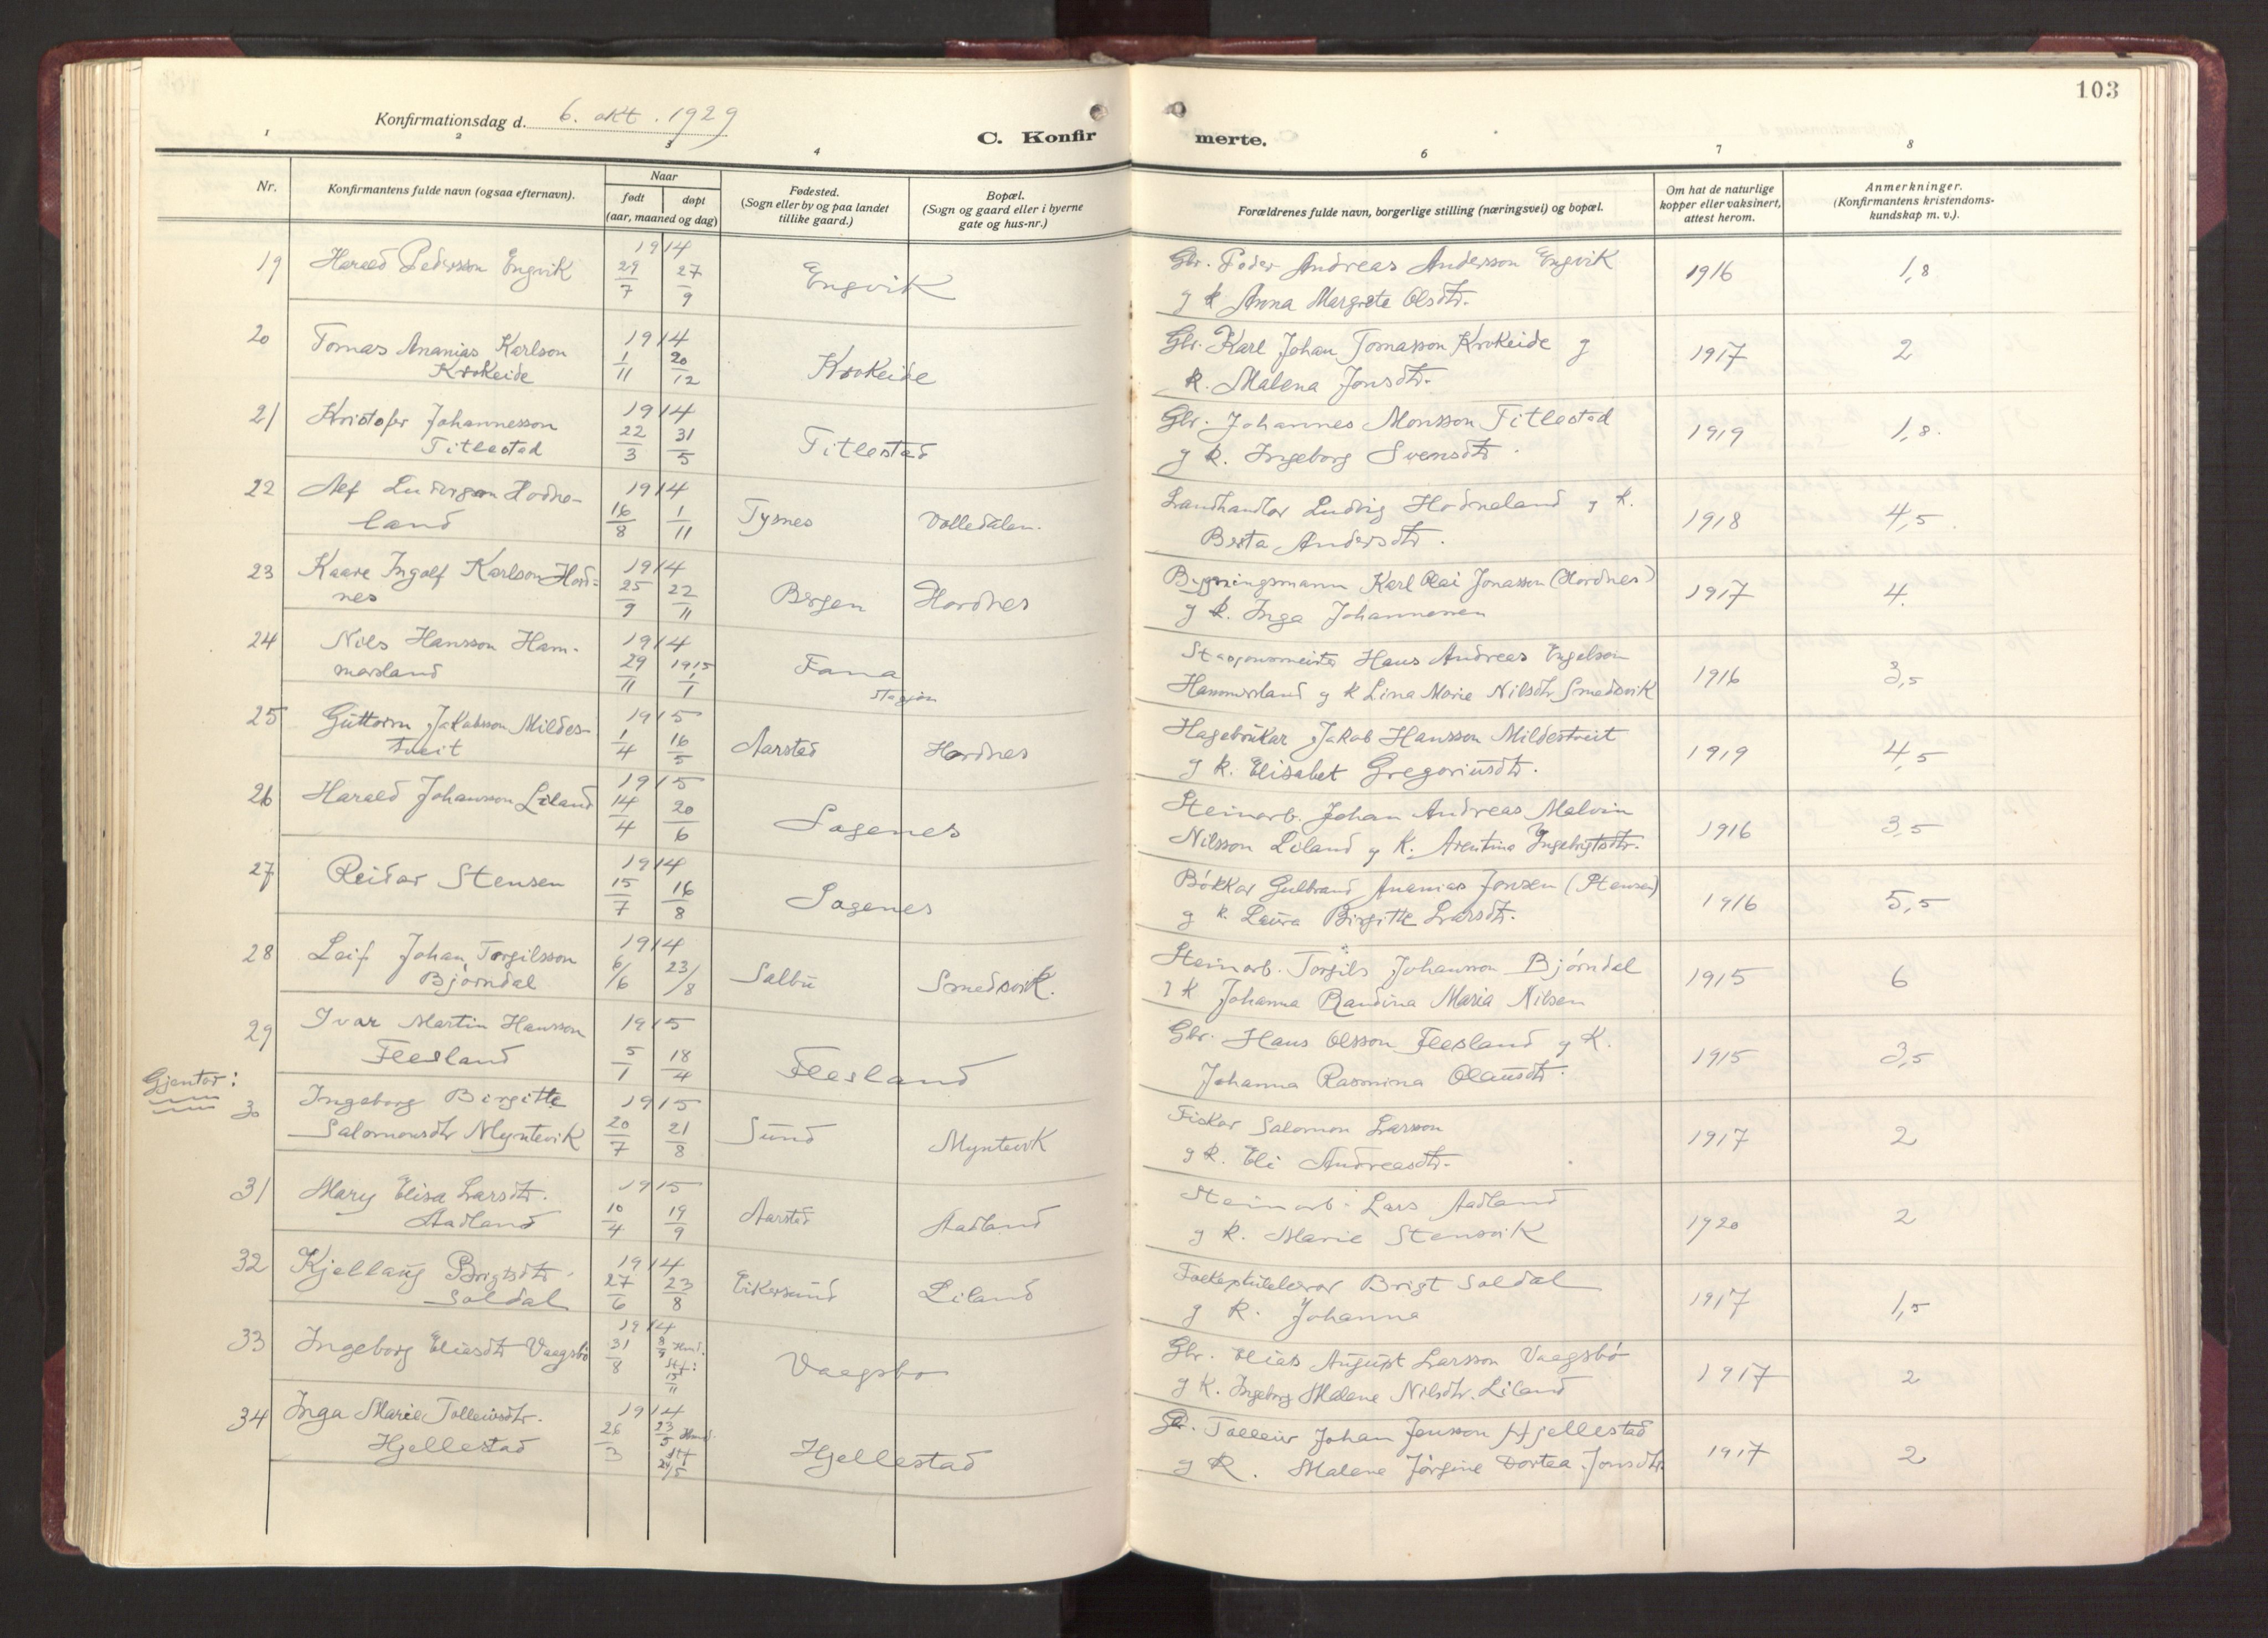 103
Konfirmationsdag d. 6. okt. 1929
C. Konfirmerte.
1 2 3 4 6 7 8
Nr.
Konfirmantens fulde navn (ogsaa efternavn).
Naar
født døpt
(aar, maaned og dag)
Fødested.
(Sogn eller by og paa landet
tillike gaard.)
Bopæl.
(Sogn og gaard eller i byerne
gate og hus-nr.)
Forældrenes fulde navn, borgerlige stilling (næringsvei) og bopæl.
Om hat de naturlige
kopper eller vaksinert,
attest herom.
Anmerkninger.
(Konfirmantens kristendoms-
kundskap m. v.).
19 Harald Pedersson Engvik 1914 29/7 27/9 Engvik Gbr. Peder Andreas Andersson Engvik 1916 1,8
g k Anna Margrete Olsdtr.
20 Tomas Ananias Karlson 1914 1/11 20/12 Krokeide Gbr. Karl Johan Tomasson Krokeide g 1917 2
Krokeide k. Malena Jonsdtr.
21 Kristofer Johannesson 1914 22/3 31/5 Titlestad Gbr. Johannes Monsson Titlestad 1919 1,8.
Titlestad g k. Ingeborg Svensdtr.
22 Ludvigson Hodne- 1914 16/8 1/11 Tysnes Dolledalen. Landhandlar Ludvig Hodneland g k. 1918 4,5
land Berta Andersdtr.
23 Kaare Ingolf Karlson Hord= 1914 25/9 22/11 Bergen Hordnes Bygningsmann Karl Olai Jonasson (Hordnes) 1917 4.
nes g k. Inga Johannessen
24 Nils Hansson Ham- 1914 29/11 1915 1/1 Fana Stasjonsmeister Hans Andreas Engelson 1916 3,5
marsland stasjon Hammersland g k Lina Marie Nilsdtr Smedsvik
25 Guttorm Jakobsson Mildes- 1915 1/4 16/5 Aarstad Hordnes Hagebrukar Jakob Hansson Mildestveit 1919 4,5
tveit g k. Elisabet Gregoriusdtr.
26 Harald Johansson Liland 1915 14/4 20/6 Sagenes Steinarb. Johan Andreas Malvin 1916 3,5
Nilsson Liland g k. Arentina Ingebrigtsdtr.
27 Reidar Stensen 1914 15/7 16/8 Sagenes Bökkar Gulbrand Ananias Jensen (Stensen) 1916 5,5
g k. Laura Birgitte Larsdtr.
28 Leif Johan Torgilsson 1914 6/6 23/8 Salbu Smedsvik. Steinarb. Torgils Johansson Björndal 1915 6
Björndal g k Johanna Randina Maria Nilsen
29 Ivar Martin Hansson 1915 5/1 18/4 Flesland Gbr. Hans Olsson Flesland g k. 1915 3,5
Flesland Johanna Rasmina Olausdtr.
Gjentor:
30 Ingeborg Birgitte 1915 20/7 21/8 Sund Myntevik Fiskar Salomon Larsson 1917 2
Salomonsdtr Myntevik g k. Eli Andreasdtr.
31 Mary Elisa Larsdtr. 1915 10/4 19/9 Aarstad Aadland Steinarb. Lars Aadland 1920 2
Aadland g k. Marie Stensvik
32 Kjellaug Brigtsdtr. 1914 27/6 23/8 Eikersund Liland Folkeskulelærar Brigt Soldal 1917 1,5
Soldal g k. Johanna
33 Ingeborg Eliasdtr Vaagsbö 1914 31/8 Stf: 15/11 Vaagsbo Gbr. Elias August Larsson Vaagsbö 1917 2
g k. Ingeborg Malene Nilsdtr. Liland
34 Inga Marie Tolleivsdtr. 1914 26/3 23/5 Hmd. Stf 24/5 Hjellestad Gbr. Tolleiv Johan Jensson Hjellestad 1917 2
Hjellestad g k. Malene Jörgine Dortea Jonsdtr.